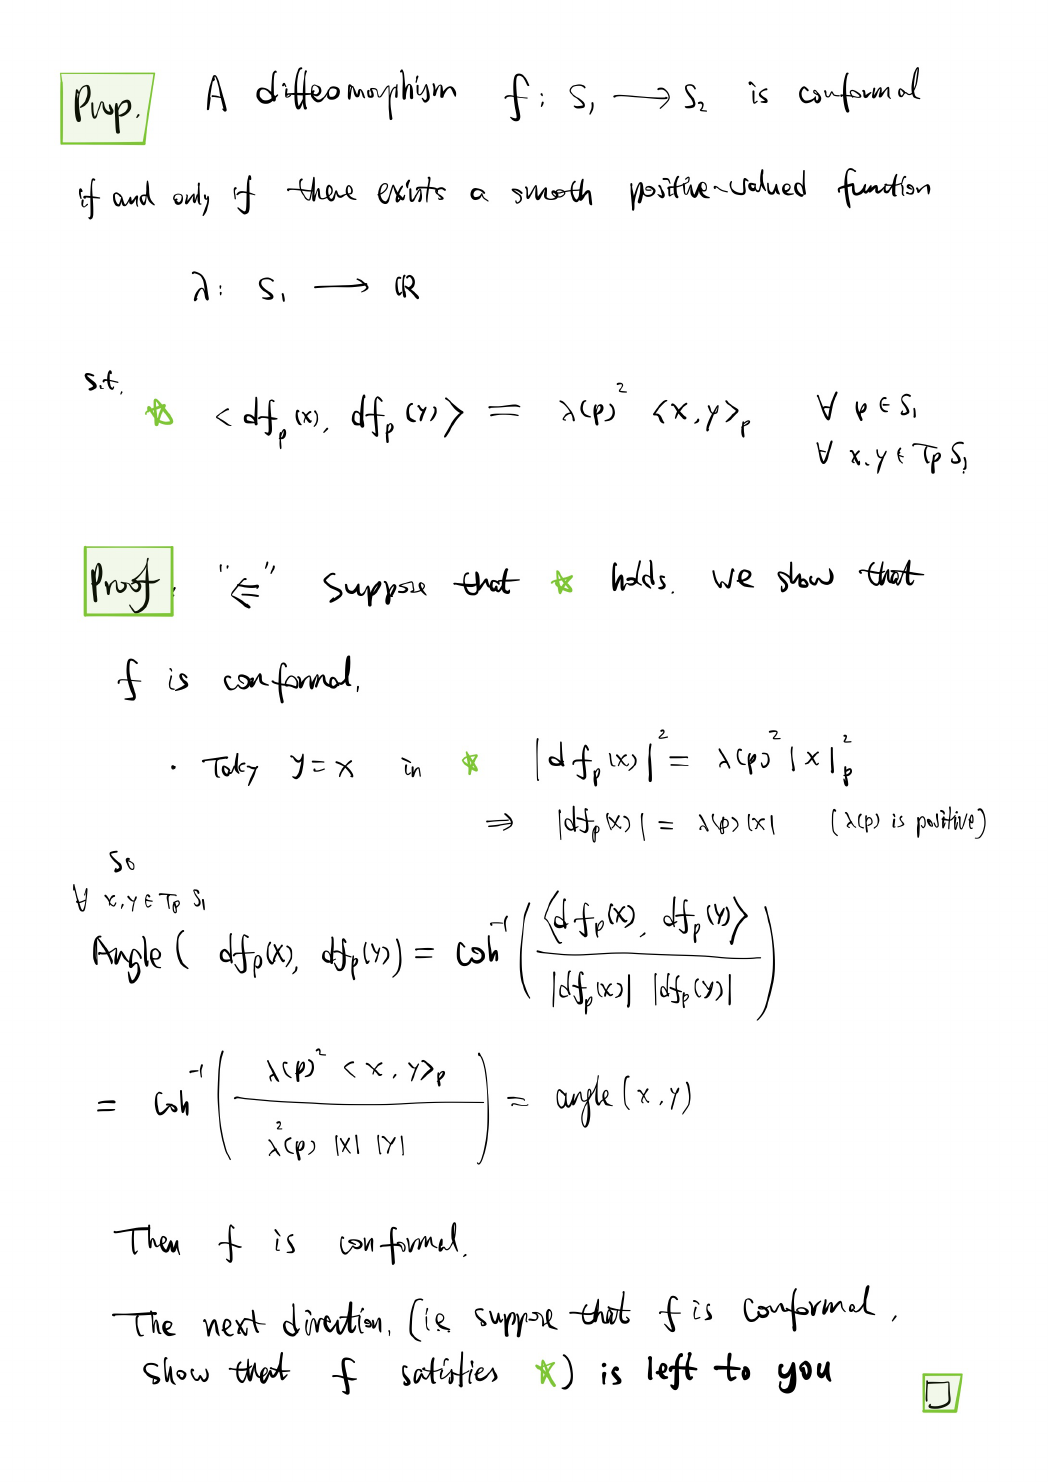 Prop. A diffeomorphism f: S₁ ⟶ S₂ is conformal
if and only if there exists a smooth positive-valued function
λ: S₁ ⟶ ℝ
s.t. ☆ <df_p(x), df_p(Y)> = λ(p)² <x,y>_p ∀ p ∈ S₁
∀ x,y ∈ T_p S₁
Proof. "⇐" Suppose that ☆ holds. We show that
f is conformal.
• Take y=x in ☆ |df_p(x)|² = λ(p)² |x|²_p
⇒ |df_p(x)| = λ(p)|x| (λ(p) is positive)
So
∀ x,y ∈ T_p S₁
Angle( df_p(x), df_p(Y)) = cosh⁻¹ ( <df_p(x), df_p(Y)> / |df_p(x)| |df_p(Y)| )
= cosh⁻¹ ( λ(p)² <x,y>_p / λ²(p) |x| |Y| ) = angle(x,y)
Then f is conformal.
The next direction, (ie suppose that f is conformal,
show that f satisfies ☆) is left to you
□